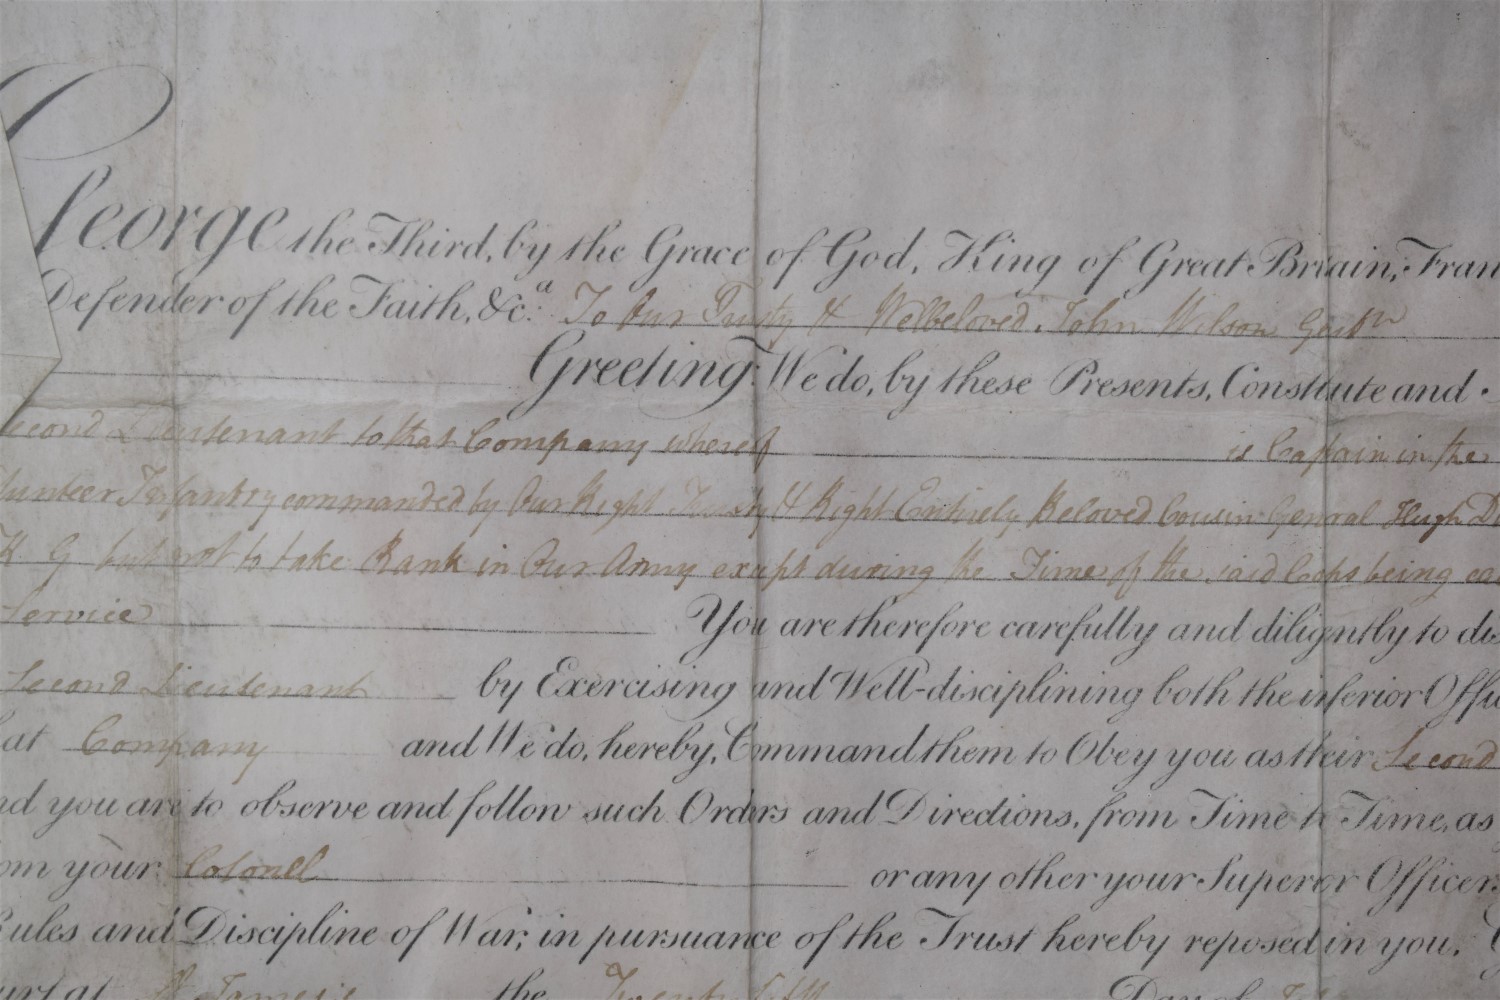 George the Third, by the Grace of God, King of Great Britain, Fran
Defender of the Faith, &c.a To Our Trusty & Welbeloved John Wilson Gentn
Greeting: We do, by these Presents, Constitute and
Second Lieutenant to that Company whereof is Captain in the
lunteer Infantry commanded by Our Right Trusty & Right Entirely Beloved Cousin General Hugh D
K G but not to take Rank in Our Army except during the Time of the said Corps being ca
Service You are therefore carefully and diligently to dis
Second Lieutenant by Exercising and Well-disciplining both the inferior Offi
at Company and We do, hereby, Command them to Obey you as their Second
nd you are to observe and follow such Orders and Directions, from Time to Time, as
om your Colonel or any other your Superior Officer
Rules and Discipline of War; in pursuance of the Trust hereby reposed in you.
urt at St James's the Twenty fifth Day of